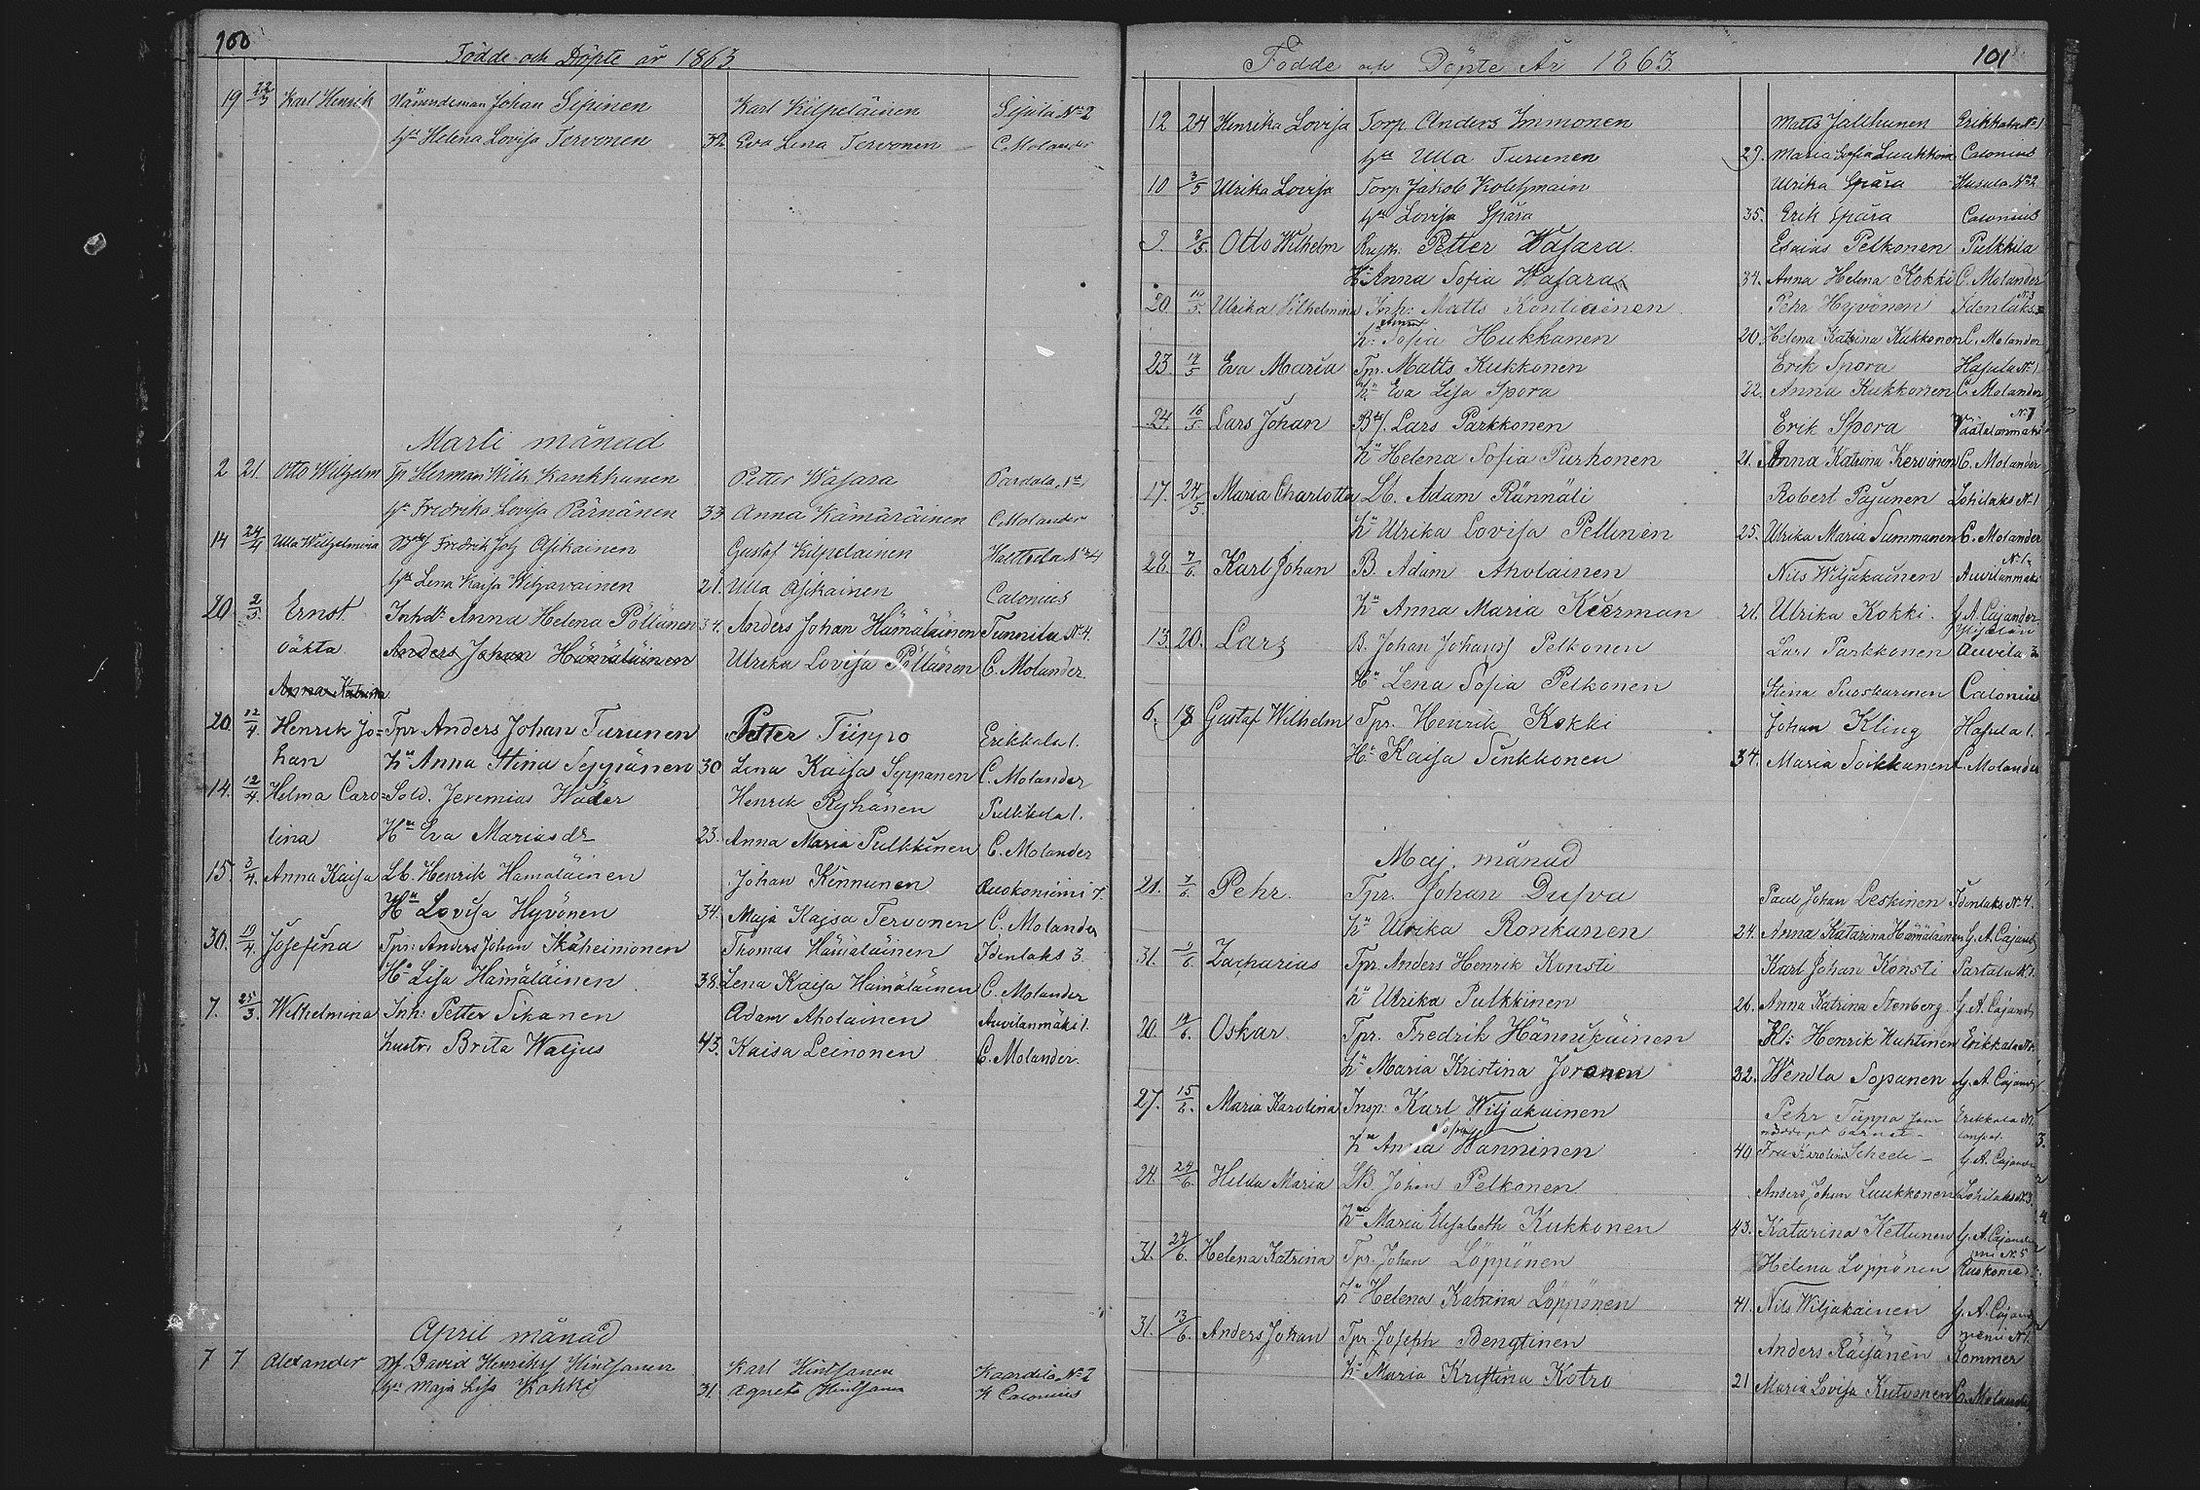 100
Födde och Döpte år 1863.
19 22/3 Karl Henrik Nämndeman Johan Sipinen Karl Kilpeläinen Sipilä No 2
Hu Helena Lovisa Tervonen 32 Eva Lena Tervonen C. Molander
Marti månad
2 21 Otto Wilhelm Tp Herman Wilh. Kankkunen Petter Wasara Pardala No 1
Hu Fredrika Lovisa Pärnänen 33 Anna Kämäräinen C. Molander
14 24/4 Ulla Wilhelmina Fredrik Asikainen Gustaf Kilpeläinen
Hu Lena Kaisa Wiljavainen 21. Ulla Asikainen Calonius
20 2/5. Ernst Inhd: Anna Helena Pöllänen 34. Anders Johan Hämäläinen Tunnila No 4.
oäkta Anders Johan Hämäläinen Ulrika Lovisa Pöllänen C. Molander.
Anna Katrina
20. 12/4 Henrik Jo= Tpr Anders Johan Turunen Petter Tiippo Erikkala 1.
han hu Anna Stina Seppänen 30 Lena Kaisa Seppänen C. Molander
14. 12/4. Helma Caro= Sold. Jeremias Wäder Henrik Ryhänen Pulkkala 1.
lina Hu Eva Mariasdr 23. Anna Maria Pulkkinen C. Molander
15. 3/4. Anna Kaisa Lb. Henrik Hämäläinen Johan Kinnunen Auokoniemi 7.
Hu Lovisa Hyvönen 34. Maja Kajsa Tervonen C. Molander
30. 19/4. Josefina Tpr: Anders Johan Ikäheimonen Thomas Hämäläinen Idenlaks 3.
Hu Lisa Hämäläinen 38. Lena Kaisa Hämäläinen C. Molander
7. 25/3. Wilhelmina Inh: Petter Sikanen Adam Aholainen Auvilanmäki 1.
hustr: Brita Waljus 43. Kaisa Leinonen C. Molander.
April månad
7 7 Alexander David Henrikss Hintsanen Karl Hintsanen Kaardila No 2
Hu Maja Lisa Kokki 31. Agneta Hintsanen K Calonius
Födde och Döpte År 1863. 101
12 24 Henrika Lovisa Torp. Anders Immonen Matts Jalkunen Erikkala No 1
Hu Ulla Turunen 27. Maria Sofia Luukkoin Calonius
10 3/5 Ulrika Lovisa Torp Jakob Kolehmain Ulrika Spåra Husula No 2
Hu Lovisa Spåra 35. Erik Spåra Calonius
9. 3/5. Otto Wilhelm Petter Wasara. Esaias Pelkonen Pulkkila
Hu Anna Sofia Wasara 34. Anna Helena Kokki C. Molander
20. 10/5. Ulrika Wilhelmina Inh: Matts Kontiainen. Pehr Hyvönen Idenlaks No 3
hu: Anna Sofia Hukkanen 20. Helena Katrina Kukkonen C. Molander
23. 14/5 Eva Maria Tpr. Matts Kukkonen Erik Spora Hasula No 1
hu Eva Lisa Spora 22. Anna Kukkonen C. Molander
24. 16/5 Lars Johan Lars Parkkonen Erik Spora Väätälänmäki No 7
hu Helena Sofia Purhonen 21. Anna Katrina Kervinen C. Molander
17. 24/5 Maria Charlotta Lb. Adam Rännäli Robert Pajunen Lohilaks No 1
hu Ulrika Lovisa Pellinen 25. Ulrika Maria Summanen C. Molander
28. 7/6. Karl Johan B. Adam Aholainen Nils Wiljakainen Auvilanmäki No 1
hu Anna Maria Keerman 21. Ulrika Kokki. G. A. Cajander
13. 20. Lars B. Johan Johanss Pelkonen Lars Parkkonen Auvila 3.
Hu Lena Sofia Pelkonen Stina Puoskarinen Calonius
6. 18 Gustaf Wilhelm Tpr. Henrik Kokki Johan Kling Hasula 1.
Hu Kaisa Sinkkonen 34. Maria Toikkanen C. Molander
Maj. månad
21. 7/6 Pehr. Tpr. Johan Dufva Paul Johan Leskinen Idenlaks No 4.
hu Ulrika Ronkanen 24. Anna Katarina Hämäläinen G. A. Cajand
31. 7/6. Zacharias Tpr. Anders Henrik Konsti Karl Johan Konsti Partala No 1.
hu Ulrika Pulkkinen 26. Anna Katrina Stenberg. G. A. Cajand
20. 14/6. Oskar. Tpr. Fredrik Hännikäinen Henrik Huhtinen Erikkala No 1
hu Maria Kristina Joronen 32. Wendla Sopanen G. A. Cajand
27. 15/6. Maria Karolina Insp: Karl Wiljakainen Pehr Tiippa som Erikkala No 1.
nöddöpt barnet
hu Anna Sofia Wänninen 40 Fru Karolina Schede G. A. Cajand
24 24/6. Hilda Maria LB. Johan Pelkonen Anders Johan Luukkonen Lohilaks No 3
hu Maria Elisabeth Kukkonen 43. Katarina Kettunen G. A. Cajander
31. 24/6. Helena Katrina Tpr. Johan Löppönen Helena Löppönen Ruokonie mi No 5
hu Helena Katrina Löppönen 41. Nils Wiljakainen G. A. Cajand
31. 13/6. Anders Johan Tpr. Joseph Bengtinen Anders Räisänen Kommer menii No 1.
hu Maria Kristina Kotro 21 Maria Lovisa Kutvonen C. Molander